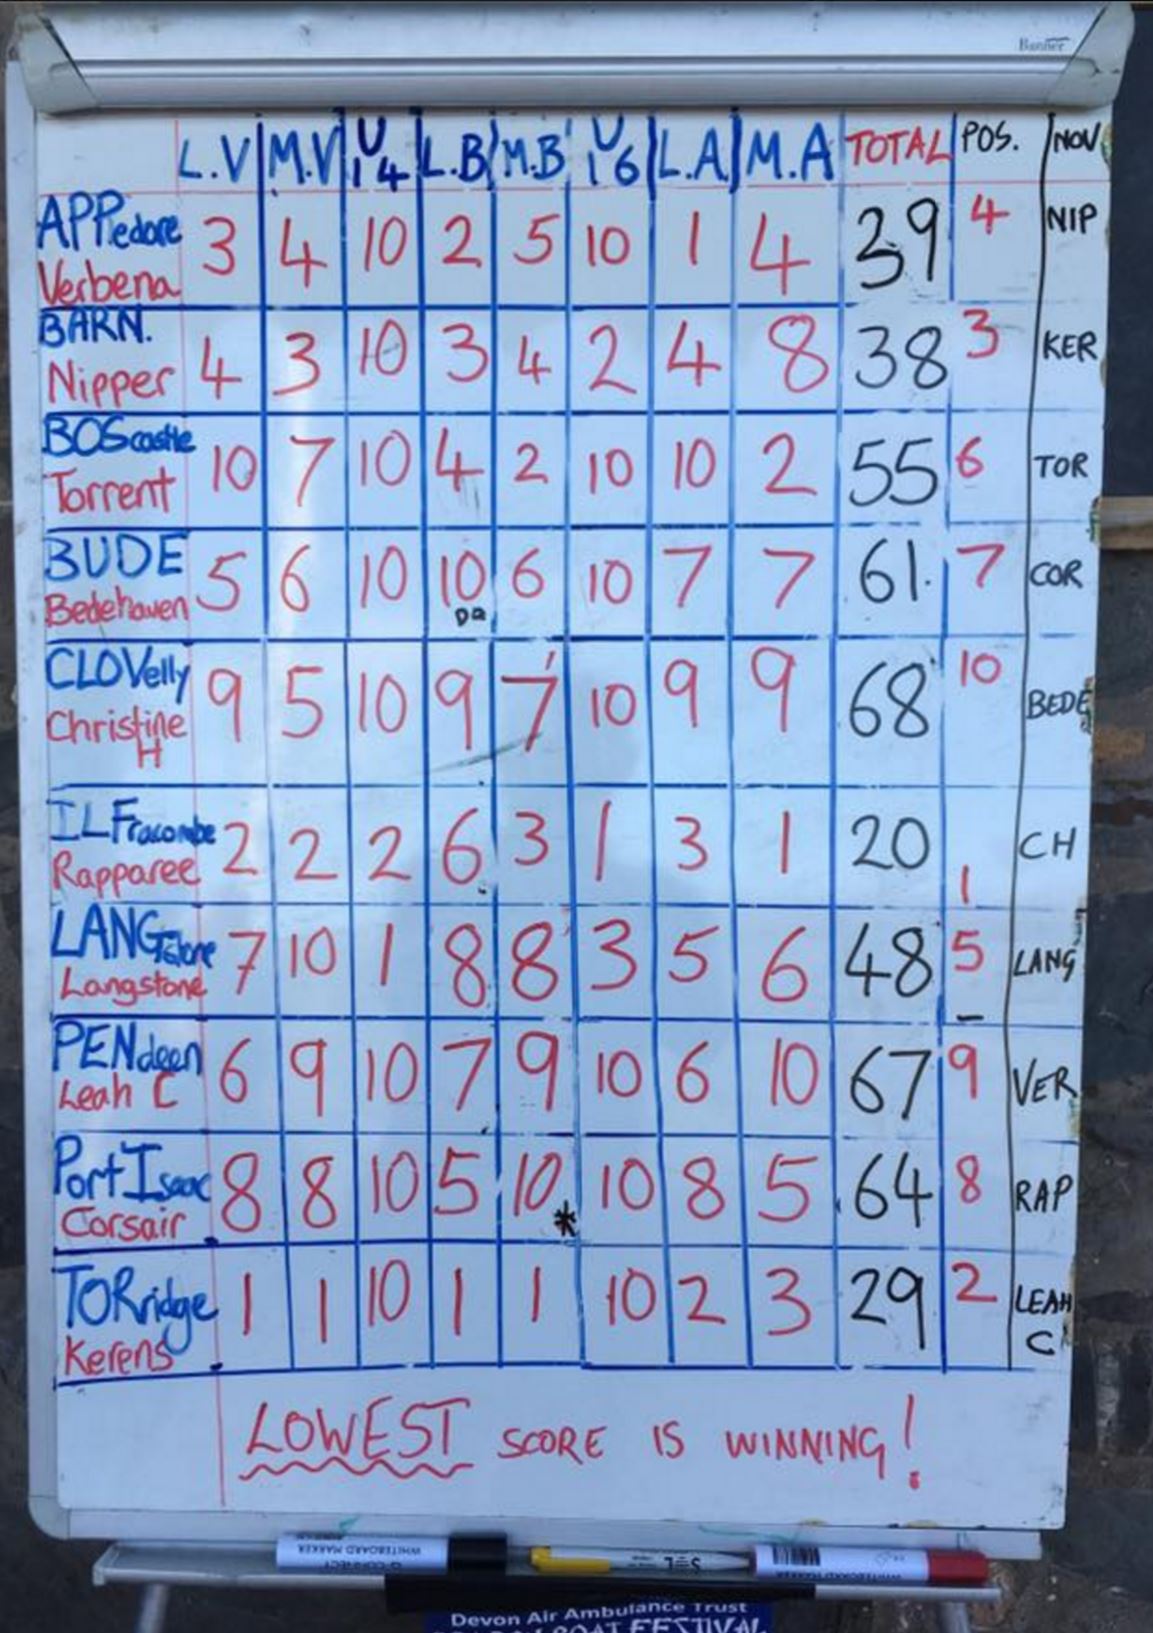 Banner
L.V M.V U14 L.B M.B U16 L.A M.A TOTAL POS. NOV
APPedore 3 4 10 2 5 10 1 4 39 4 NIP
Verbena
BARN. 4 3 10 3 4 2 4 8 38 3 KER
Nipper
BOScastle 10 7 10 4 2 10 10 2 55 6 TOR
Torrent
BUDE 5 6 10 10 6 10 7 7 61. 7 COR
Bedehaven DQ
CLOVelly 9 5 10 9 7 10 9 9 68 10 BEDE
Christine
H
ILFracombe 2 2 2 6 3 1 3 1 20 1 CH
Rapparee
LANGstone 7 10 1 8 8 3 5 6 48 5 LANG
Langstone
PENdeen 6 9 10 7 9 10 6 10 67 9 VER
Leah C
Port Isaac 8 8 10 5 10 * 10 8 5 64 8 RAP
Corsair
TORridge 1 1 10 1 1 10 2 3 29 2 LEAH C
Kerens
LOWEST SCORE IS WINNING!
WHITEBOARD MARKER
WHITEBOARD MARKER
Devon Air Ambulance Trust
BOAT FESTIVAL